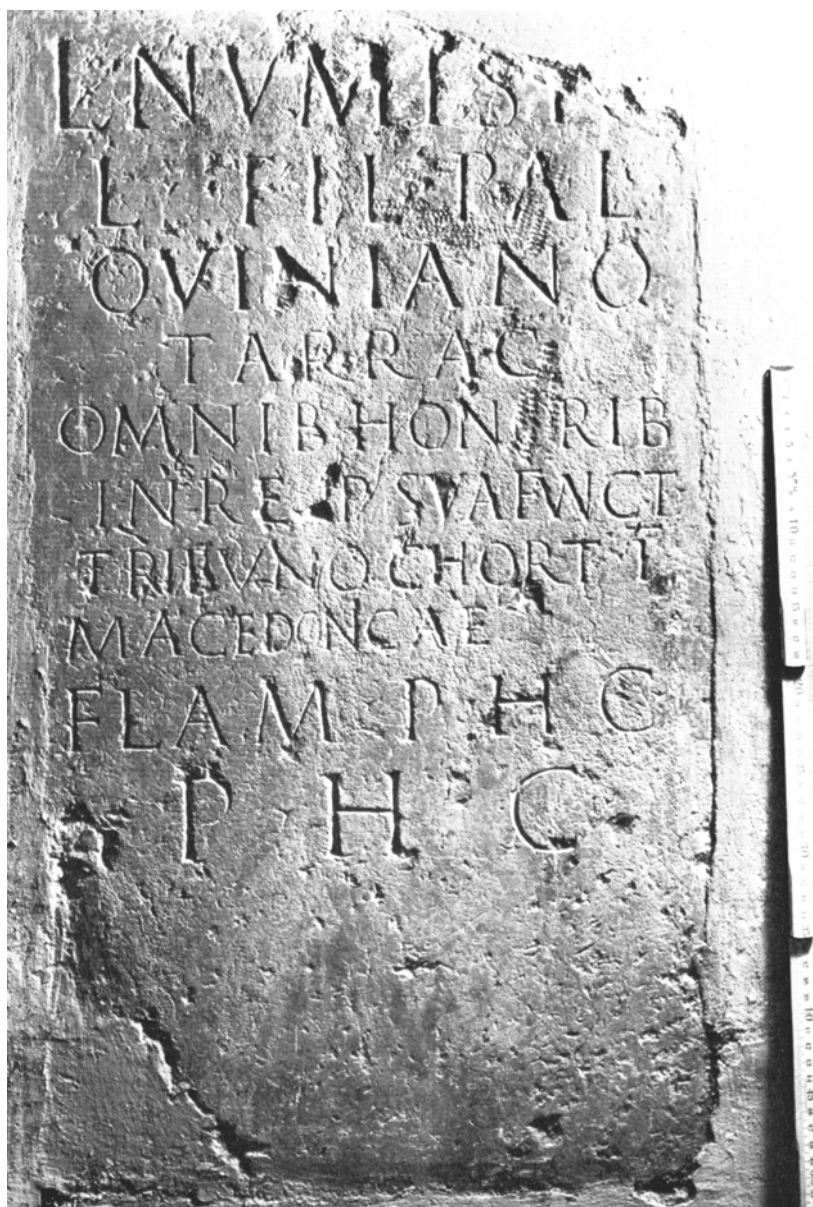 L NVMISI
L FIL PAL
OVINIANO
TARRAC
OMNIB HONORIB
IN RE P SVA FVNCT
TRIBVNO CHORT I
MACEDONICAE
FLAM P H C
P H C